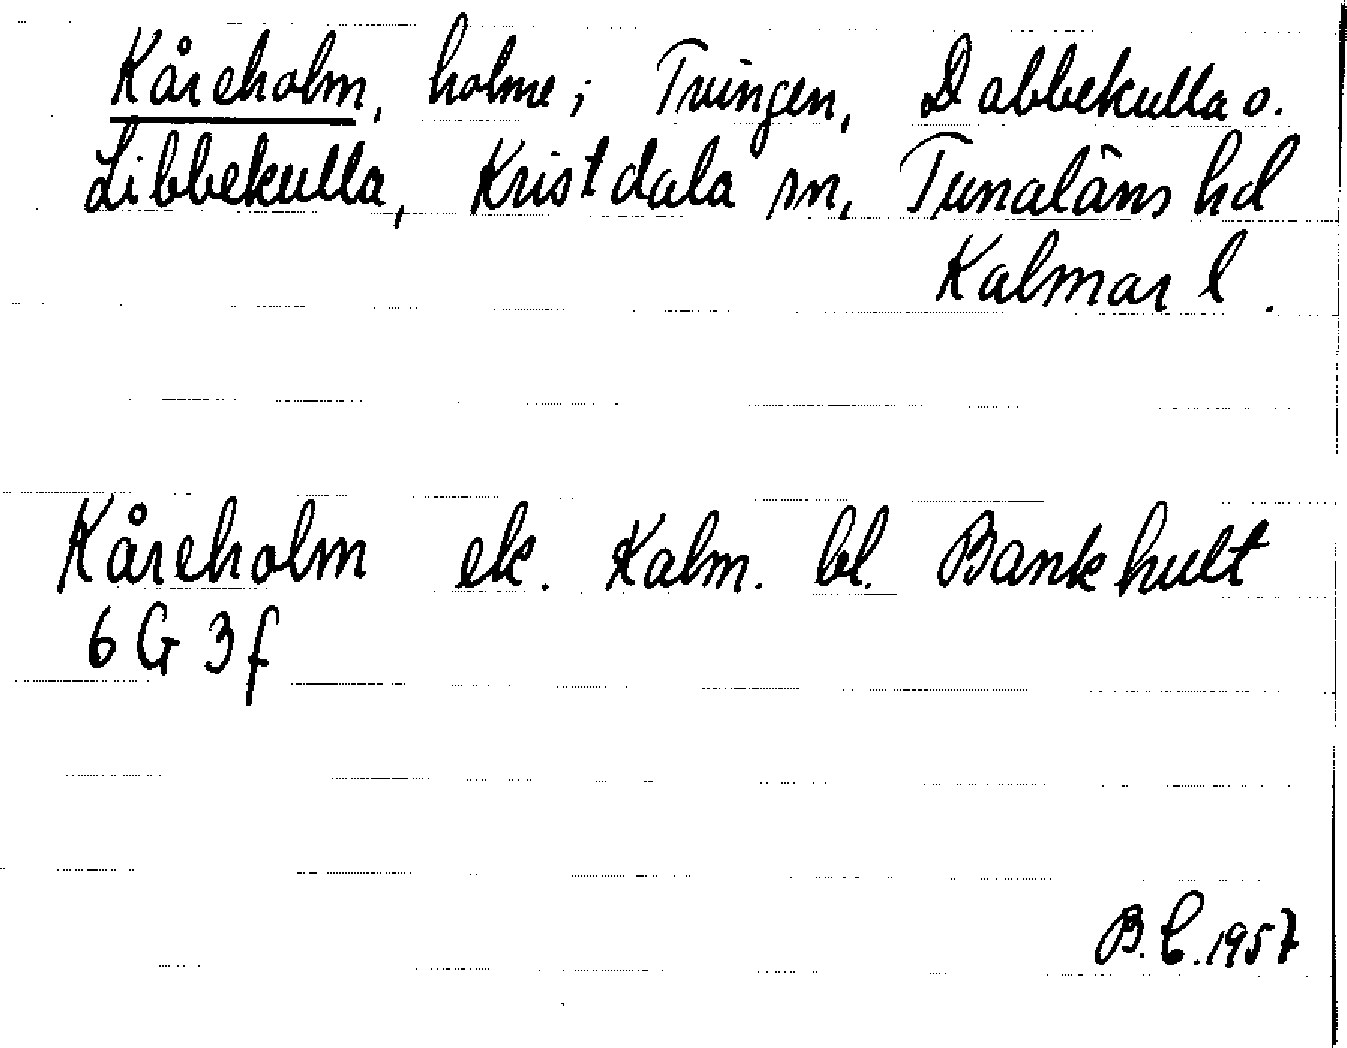 Kåreholm, holme; Tvingen, Dabbekulla o.
Libbekulla, Kristdala sn, Tunaläns hd
Kalmar l.
Kåreholm ek. Kalm. bl. Bankhult
6 G 3 f
B.C. 1957